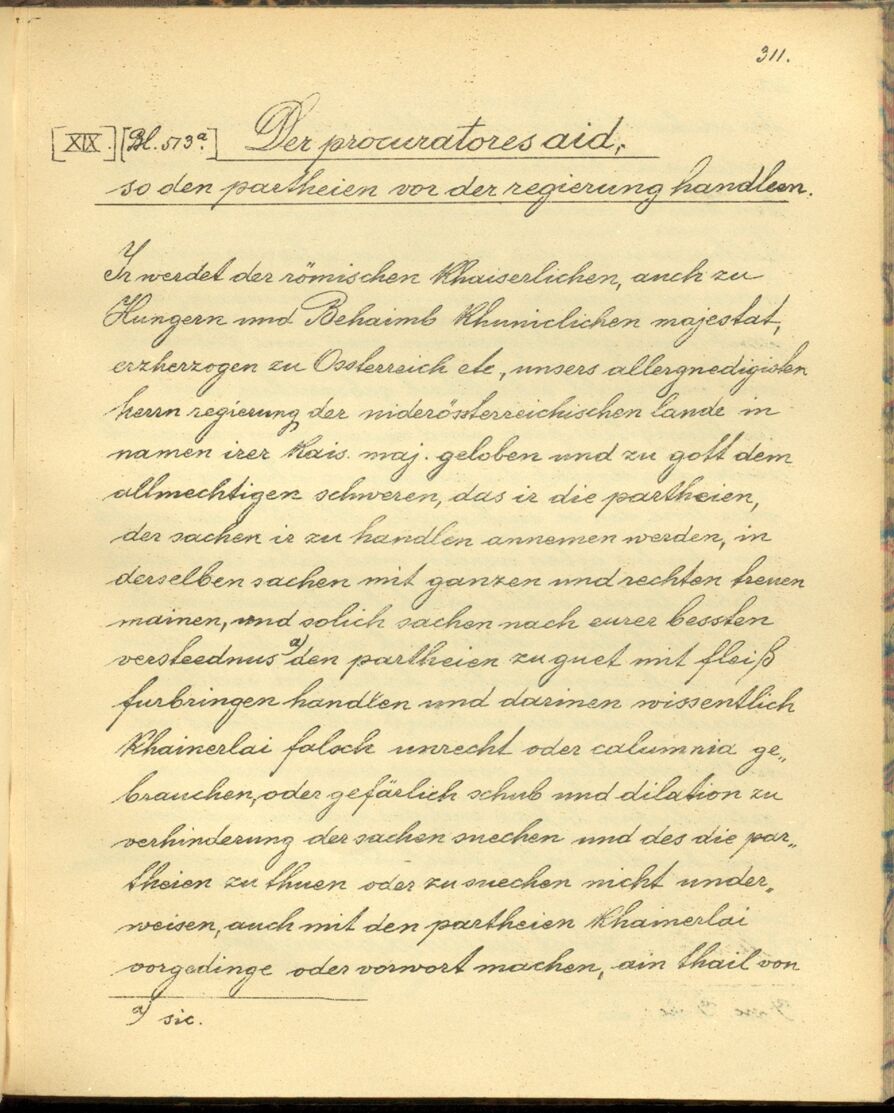 311.
[XIX.] [Bl. 573ª.] Der procuratores aid,
so den partheien vor der regierung handleen.
Ir werdet der römischen Khaiserlichen, auch zu
Hungern und Behaimb Khuniclichen majestat,
erzherzogen zu Ossterreich etc, unsers allergnedigisten
herrn regierung der niderössterreichischen lande in
namen irer Kais. maj. geloben und zu gott dem
allmechtigen schweren, das ir die partheien,
der sachen ir zu handlen annemen werden, in
derselben sachen mit ganzen und rechten treuen
mainen, und solich sachen nach eurer bessten
versteednus a) den partheien zu guet mit fleiß
furbringen handlen und darinen wissentlich
Khainerlai falsch unrecht oder calumnia ge„
brauchen, oder gefärlich schub und dilation zu
verhinderung der sachen suechen und des die par„
theien zu thuen oder zu suechen nicht under„
weisen, auch mit den partheien Khainerlai
vorgedinge oder vorwort machen, ain thail von
a) sic.